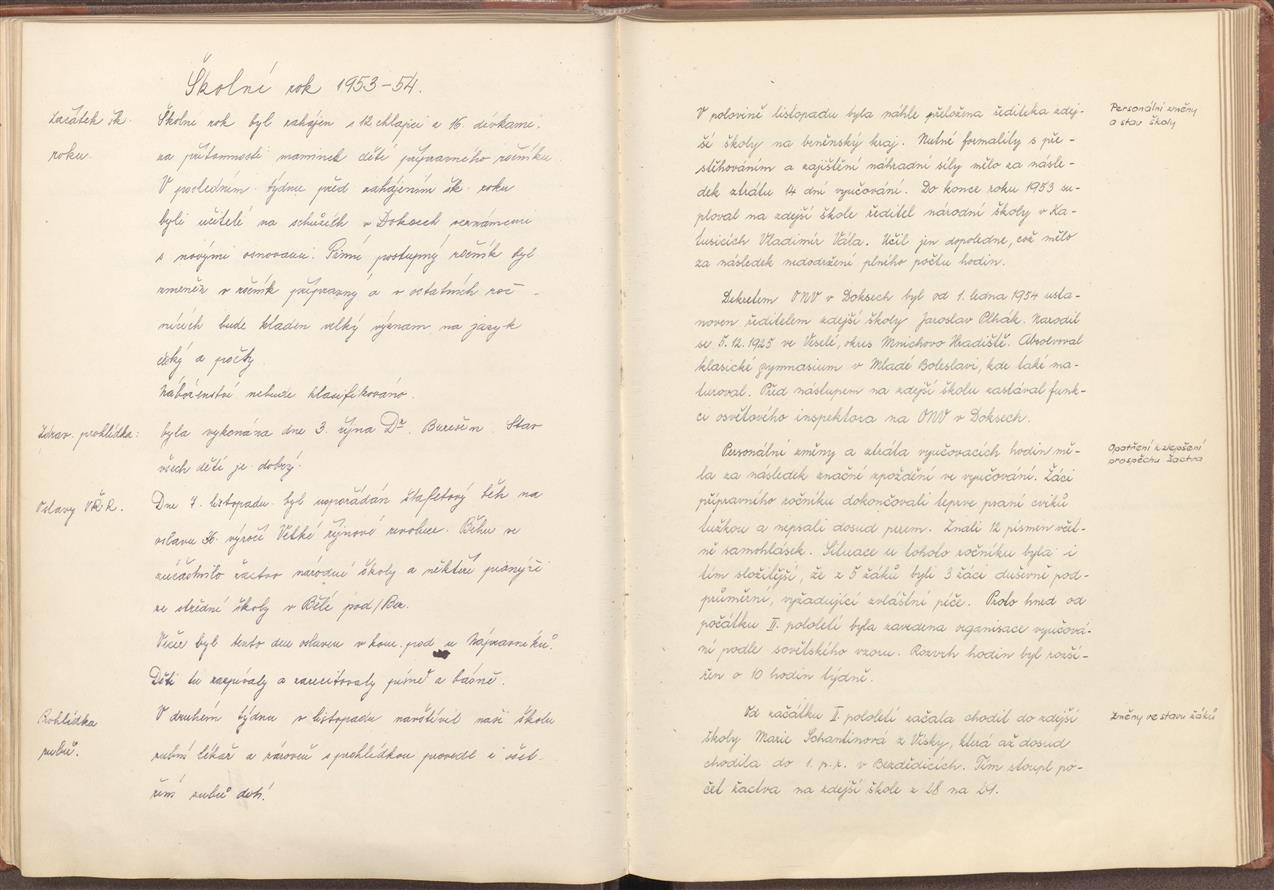 Školní rok 1953-54.
Začátek šk.
roku.
Školní rok byl zahájen s 12 chlapci a 16. dívkami.
za přítomnosti maminek dětí přípravného ročníku.
V posledním týdnu před zahájením šk. roku
byli učitelé na schůzích v Doksech seznámeni
s novými osnovami. První postupný ročník byl
změněn v ročník přípravný a v ostatních roč-
nících bude kladen velký význam na jazyk
český a počty.
Náboženství nebude klasifikováno.
Zdrav. prohlídka:
byla vykonána dne 3. října Dr. Burešem. Stav
všech dětí je dobrý.
Oslavy VŘR.
Dne 7. listopadu byl uspořádán štafetový běh na
oslavu 36. výročí Velké říjnové revoluce. Běhu se
zúčastnilo žactvo národní školy a někteří pionýři
ze střední školy v Bělé pod/Bez.
Večer byl tento den oslaven v hosp. pod u Nápravníků.
Děti tu zazpívaly a zarecitovaly písně a básně.
Prohlídka
zubů.
V druhém týdnu v listopadu navštívil naši školu
zubní lékař a zároveň s prohlídkou provedl i ošet-
ření zubů dětí.
V polovině listopadu byla náhle přeložena ředitelka zdej-
ší školy na brněnský kraj. Nutné formality s pře-
stěhováním a zajištění náhradní síly mělo za násle-
dek ztrátu 14 dní vyučování. Do konce roku 1953 su-
ploval na zdejší škole ředitel národní školy v Ka-
tusicích Vladimír Vála. Učil jen dopoledne, což mělo
za následek nedodržení plného počtu hodin.
Personální změny
a stav. školy
Dekretem ONV v Doksech byl od 1. ledna 1954 usta-
noven ředitelem zdejší školy Jaroslav Plhák. Narodil
se 5.12.1925 ve Veselé, okres Mnichovo Hradiště. Absolvoval
klasické gymnasium v Mladé Boleslavi, kde také ma-
turoval. Před nástupem na zdejší školu zastával funk-
ci osvětového inspektora na ONV v Doksech.
Personální změny a ztráta vyučovacích hodin mě-
la za následek značné zpoždění ve vyučování. Žáci
přípravného ročníku dokončovali teprve psaní cviků
tužkou a nepsali dosud perem. Znali 12 písmen včet-
ně samohlásek. Situace u tohoto ročníku byla i
tím složitější, že z 5 žáků byli 3 žáci duševně pod-
průměrní, vyžadující zvláštní péče. Proto hned od
počátku II. pololetí byla zavedena organisace vyučová-
ní podle sovětského vzoru. Rozvrh hodin byl rozší-
řen o 10 hodin týdně.
Opatření k zlepšení
prospěchu žactva
Od začátku I. pololetí začala chodit do zdejší
školy Marie Schantinová z Vísky, která až dosud
chodila do 1. p. r. v Bezdědicích. Tím stoupl po-
čet žactva na zdejší škole z 28 na 29.
Změny ve stavu žáků